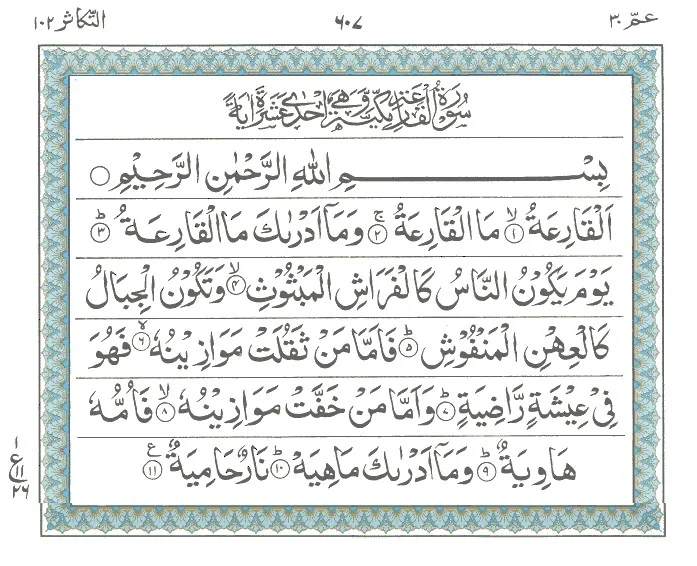 عـمّ ٣٠
٦٠٧
التّكاثر ١٠٢
سُوْرَةُ الْقَارِعَةِ مَكِّيَّةٌ وَّهِيَ اِحْدٰى عَشَرَةَ اٰيَةً
بِسْــــــــــــمِ اللهِ الرَّحْمٰنِ الرَّحِيْمِ ○
اَلْقَارِعَةُ ۙ﴿١﴾ مَا الْقَارِعَةُ ۚ﴿٢﴾ وَمَآ اَدْرٰىكَ مَا الْقَارِعَةُ ؕ﴿٣﴾
يَوْمَ يَكُوْنُ النَّاسُ كَالْفَرَاشِ الْمَبْثُوْثِ ۙ﴿٤﴾ وَتَكُوْنُ الْجِبَالُ
كَالْعِهْنِ الْمَنْفُوْشِ ؕ﴿٥﴾ فَاَمَّا مَنْ ثَقُلَتْ مَوَازِيْنُهٗ ۙ﴿٦﴾ فَهُوَ
فِيْ عِيْشَةٍ رَّاضِيَةٍ ؕ﴿٧﴾ وَاَمَّا مَنْ خَفَّتْ مَوَازِيْنُهٗ ۙ﴿٨﴾ فَاُمُّهٗ
هَاوِيَةٌ ؕ﴿٩﴾ وَمَآ اَدْرٰىكَ مَاهِيَهْ ؕ﴿١٠﴾ نَارٌ حَامِيَةٌ ع﴿١١﴾
١
ع
١١
٢٦